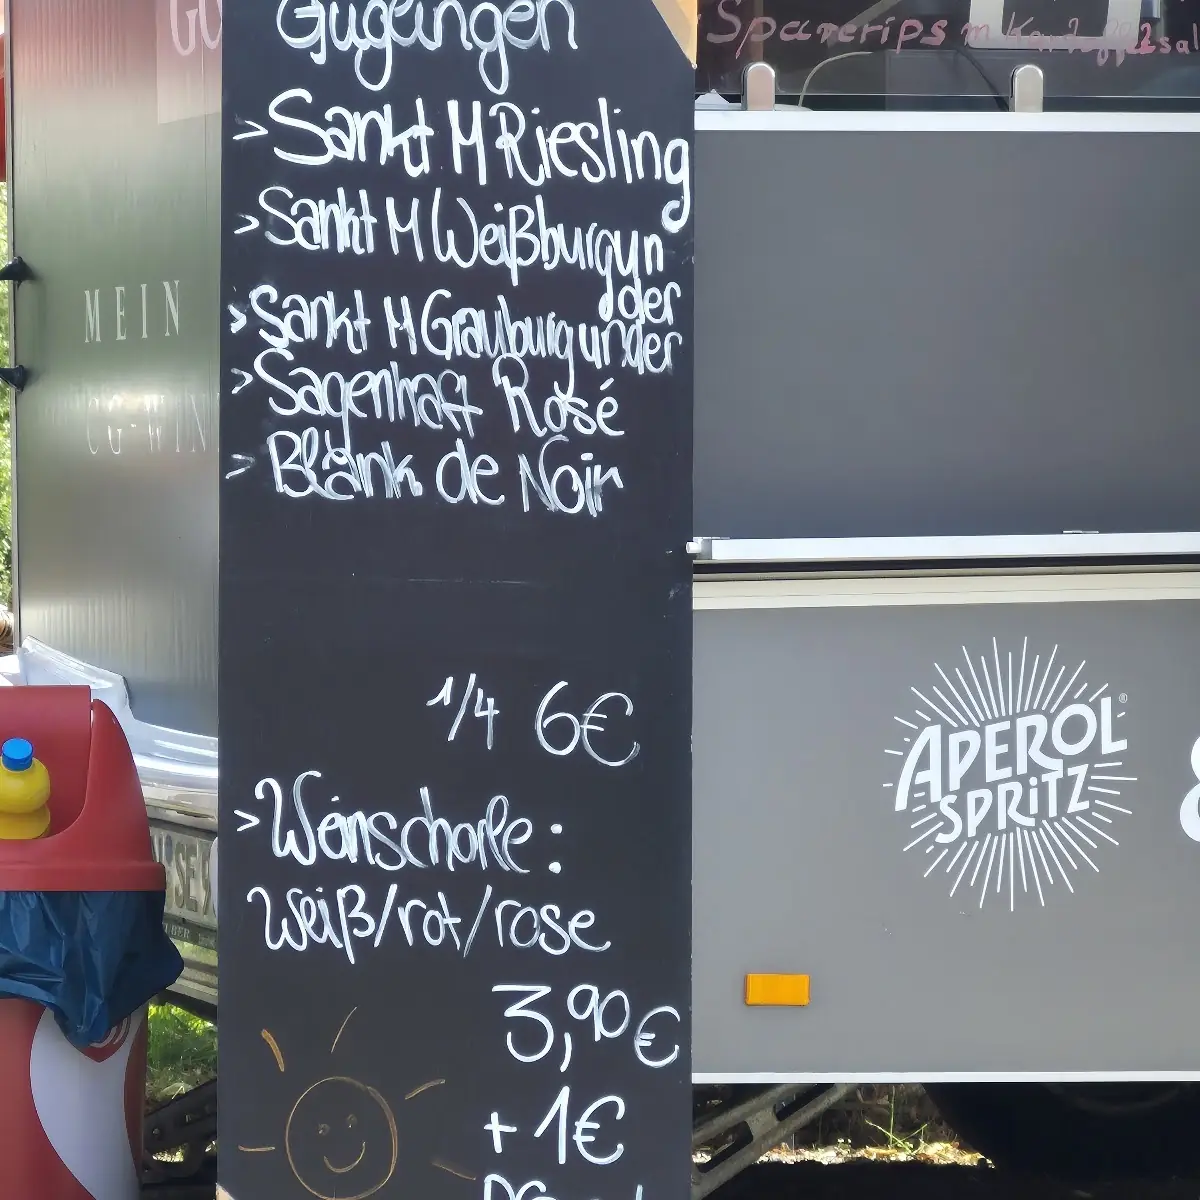 Güglingen
> Sankt M Riesling
> Sankt M Weißburgun
der
> Sankt M Grauburgunder
> Sagenhaft Rosé
> Blänk de Noir
1/4 6€
> Weinschorle:
Weiß/rot/rose
3,90€
+ 1€
Sparerips m Kartoffelsal
MEIN
CG-WIN
GO
APEROL
SPRITZ
&